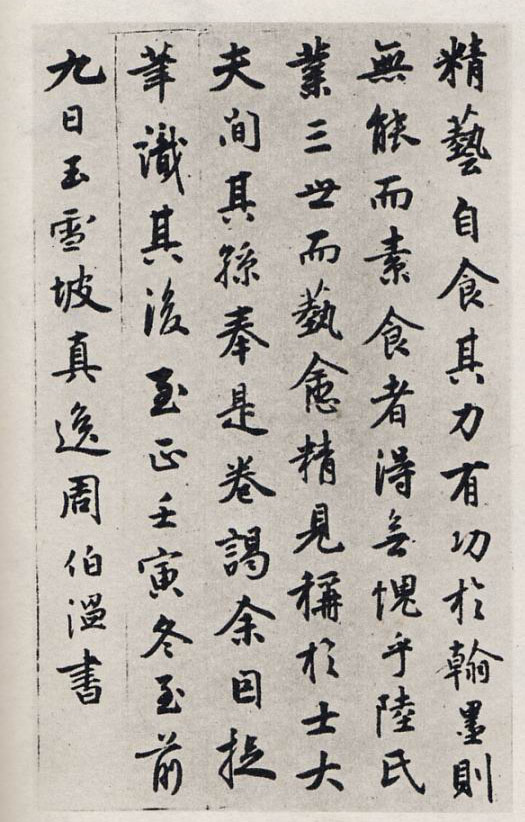 精藝自食其力有功於翰墨則
無能而素食者得無愧乎陸氏
業三世而藝愈精見稱於士大
夫間其孫奉是卷謁余因提
筆識其後至正壬寅冬至前
九日玉雪坡真逸周伯溫書